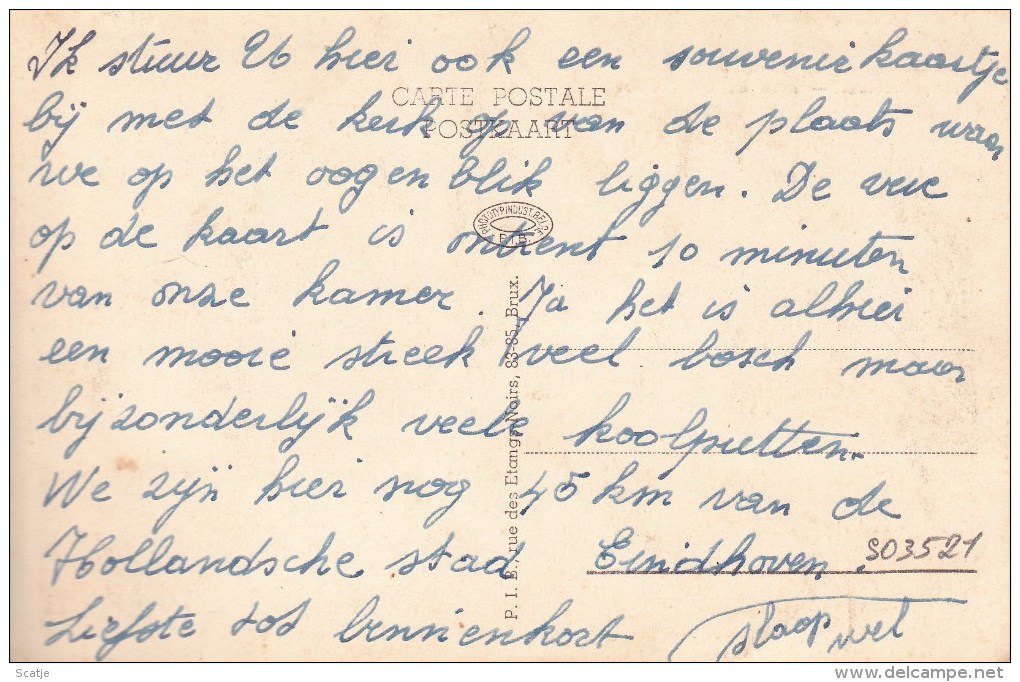 Ik stuur U hier ook een souvenir kaartje
CARTE POSTALE
bij met de kerk op van de plaats waar
POSTKAART
we op het oogenblik liggen. De
PHOTOTYP. INDUST. BELGE
P.I.B.
op de kaart is ontrent 10 minuten
van onze kamer. Ja het is alhier
een mooie streek veel bosch maar
bijzonderlijk veele koolputten.
We zijn hier nog 45 km van de
Hollandsche stad Eindhoven.
S03521
Liefste tot binnenkort slaap wel
P. I. B., rue des Etangs Noirs, 83-85, Brux.
Scatje
www.delcampe.net